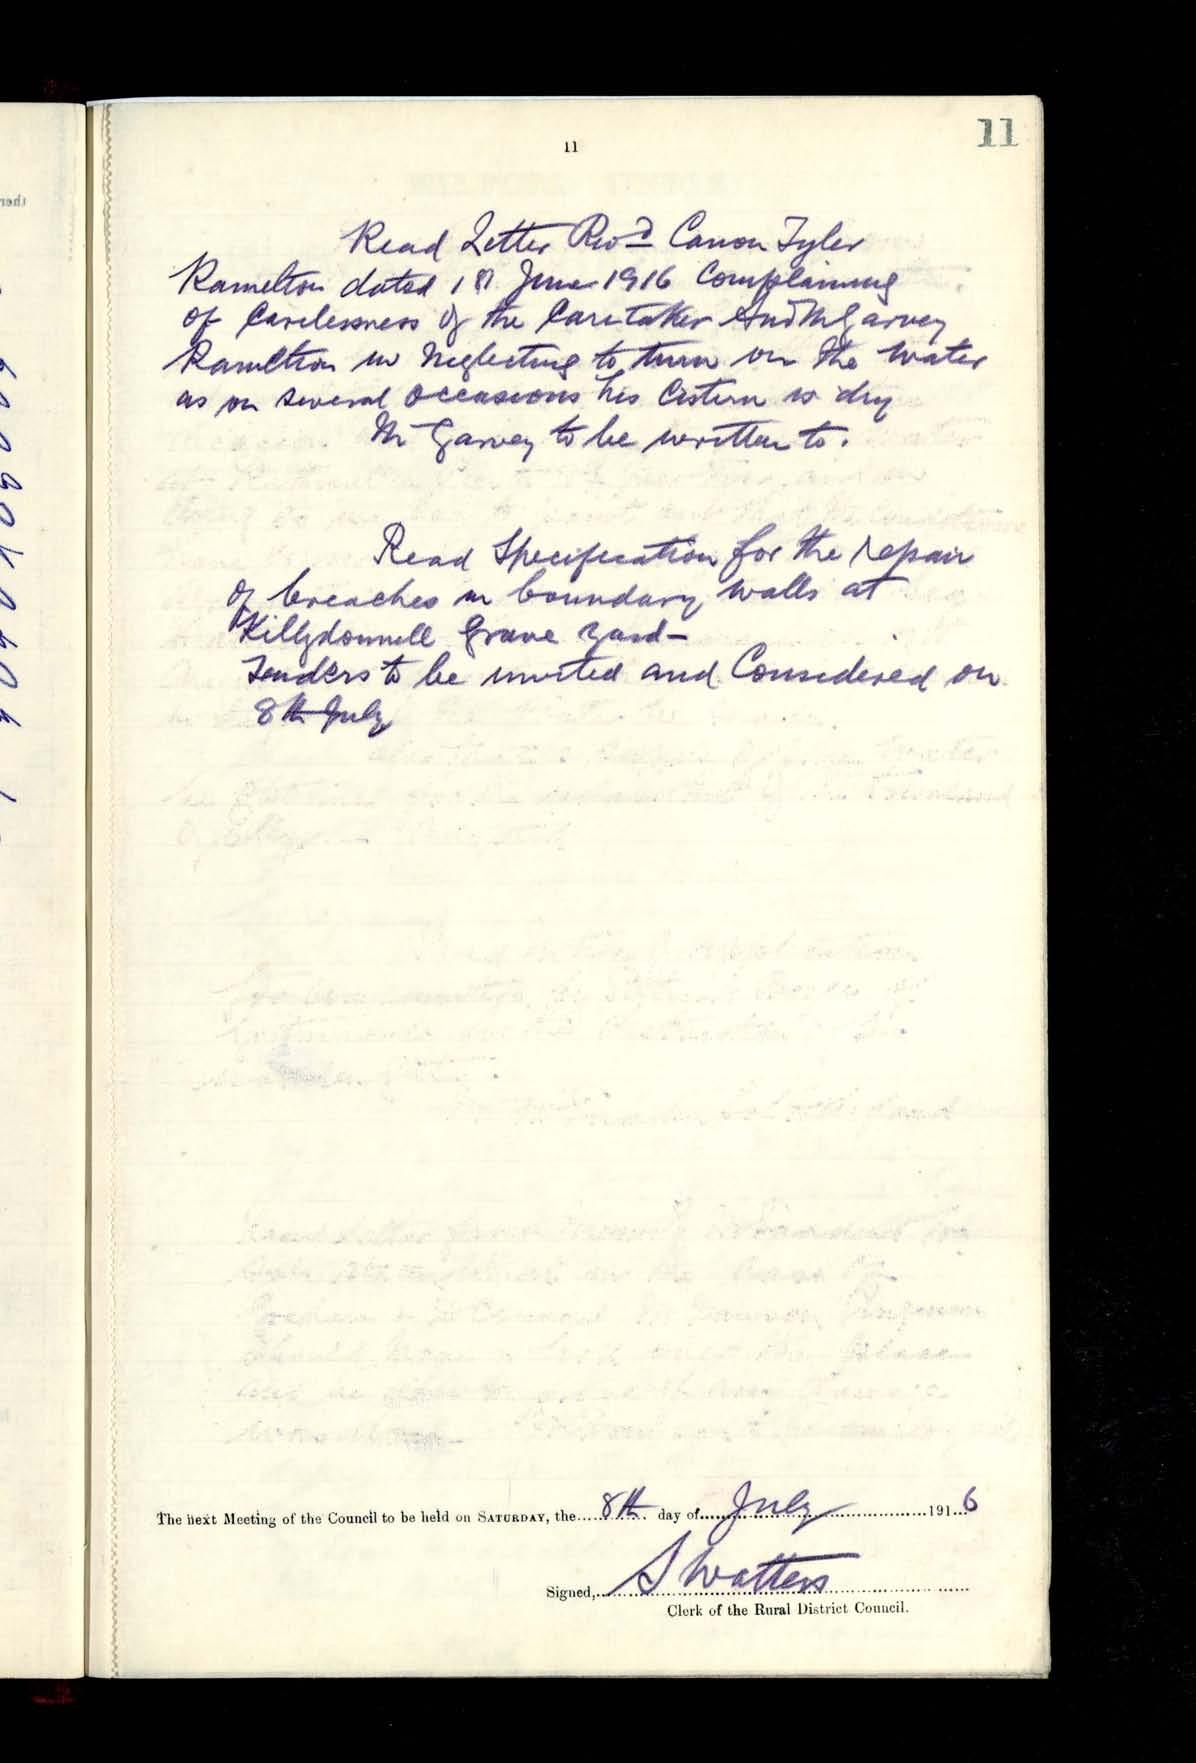 11
11
Read Letter Revd Canon Tyler
Ramelton dated June 1916 Complaining
of Carelessness of the Caretaker And McGarvey
Ramelton in Neglecting to turn on the Water
as on several occasions his Cistern is dry
McGarvey to be written to.
Read Specification for the repair
of breaches in boundary walls at
Killydonnell Grave Yard–
Tenders to be invited and Considered on
8th July
The next Meeting of the Council to be held on SATURDAY, the 8th day of July 1916
Signed, S Watters
Clerk of the Rural District Council.